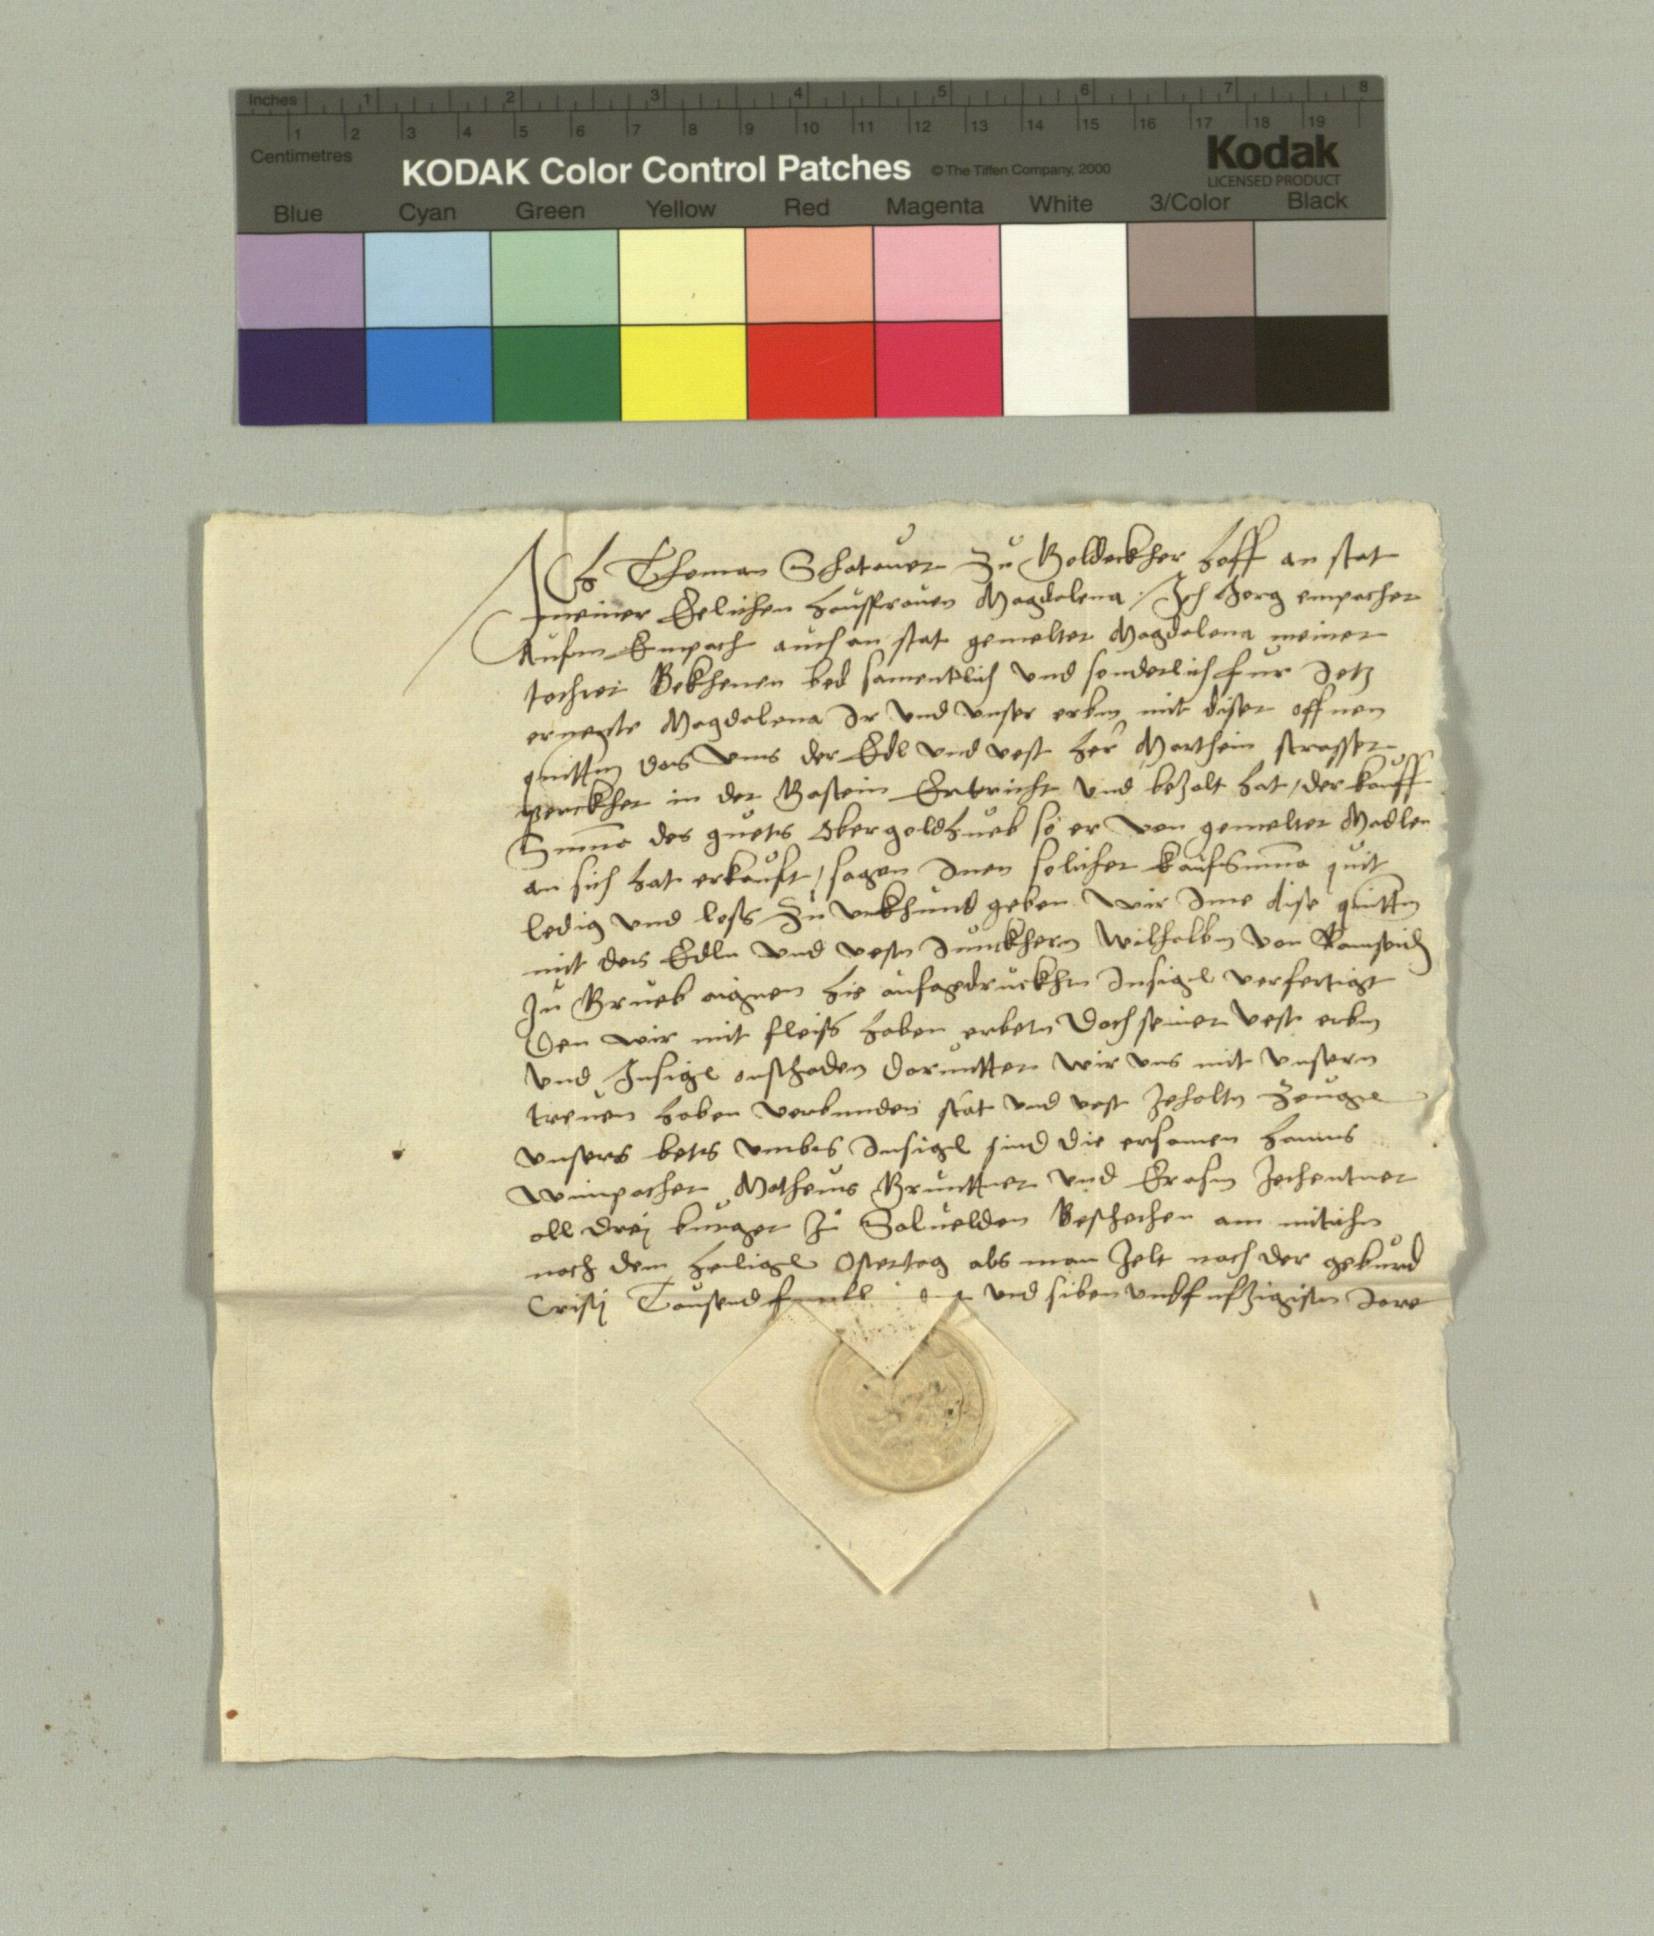 Inches 1 2 3 4 5 6 7 8
1 2 3 4 5 6 7 8 9 10 11 12 13 14 15 16 17 18 19
Centimetres
KODAK Color Control Patches © The Tiffen Company, 2000 Kodak
LICENSED PRODUCT
Blue Cyan Green Yellow Red Magenta White 3/Color Black
Ich Thoman Schatauer Zu Goldeckher hoff an stat
meiner Eelichen hausfrauen Magdalena / Ich Jorg empacher
Aufm Empach auch an stat gemelter Magdalena meiner
tochter Bekhenen bed samentlich vnd sonderlich fur Jetz
ernente Magdalena Ir vnd vnser erbm mit diser offnen
quittn das vnns der Edl vnd vest her Marthein strasser
perckher in der Gastein Entricht vnd bezalt hat / der kauff
Summa des guets Obergoldhueb so er von gemelter Madlen
an sich hat erkauft / sagen Inen solicher kaufsumma quit
ledig vnd loss Zu vrkhund geben wir Ime dise quittn
mit des Edln vnd vestn Junckhern Wilhalbm von Ramseidn
Zu Grueb aignen hie aufgedruckhn Insigl verfertigt
Den wir mit fleiss haben erbetn Doch seiner vest erbm
vnd Insigl onschaden daruntter wir vns mit vnsern
treuen haben verbunden stat vnd vest Zehaltn Zeugn
vnsers bets vmbs Insigl sind die ersamen hanns
Wimpacher Matheus Bruntner vnd Erasm Zehentner
all drej burger Zu Salvelden Beschechen am mitichn
nach dem heiligen Ostertag als man Zelt nach der geburd
Cristj Tausend funff vnd siben vndfunfzigistn Jare